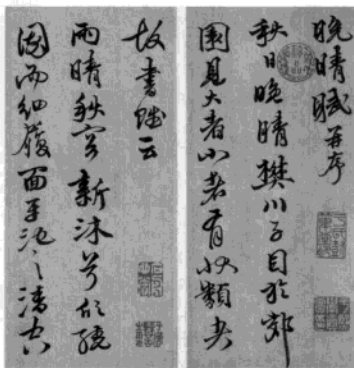 晚晴賦并序
秋日晚晴樊川子目於郊
園見大者小者有狀類者
故書賦云
雨晴秋容新沐兮忻繞
園而細履面平池之清空